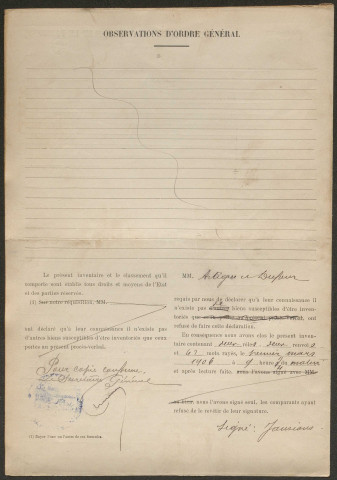 OBSERVATIONS D'ORDRE GÉNÉRAL
Le présent inventaire et le classement qu'il
comporte sont établis tous droits et moyens de l'État
et des parties réservés.
(1) Sur notre réquisition, MM.
ont déclaré qu'à leur connaissance il n'existe pas
d'autres biens susceptibles d'être inventoriés que ceux
portés au présent procès-verbal.
Pour copie conforme
Le Secrétaire Général
(1) Rayer l'une ou l'autre de ces formules.
MM. et Dufour
requis par nous de déclarer qu'à leur connaissance il
n'existe pas biens susceptibles d'être inven-
toriés que ont
refusé de faire cette déclaration.
En conséquence nous avons clos le présent inven-
taire contenant deux rôles deux renvois
et 62 mots rayés, le premier mars
1906 à 9 heures du matin
et après lecture faite, nous l'avons signé avec MM.
nous l'avons signé seul, les comparants ayant
refusé de le revêtir de leur signature.
Signé: